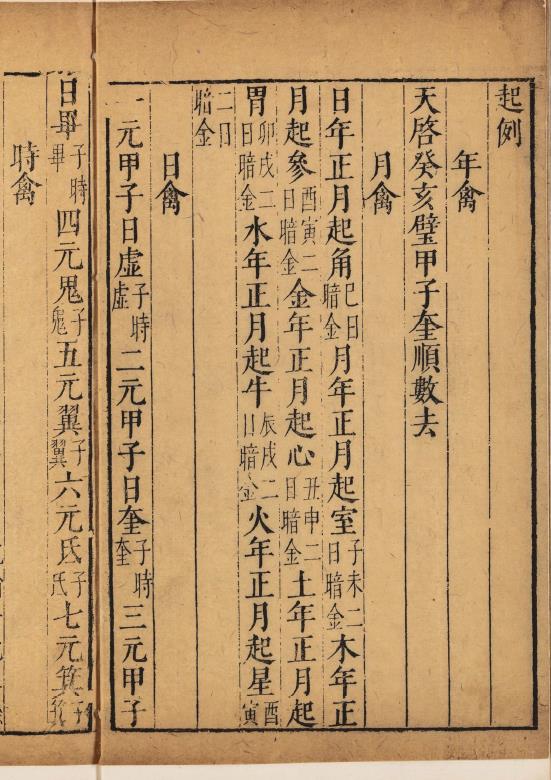 起例
年禽
天啓癸亥壁甲子奎順數去
月禽
日年正月起角巳日暗金月年正月起室子未二日暗金木年正
月起參酉寅二日暗金金年正月起心丑申二日暗金土年正月起
胃卯戌二日暗金水年正月起牛辰戌二日暗金火年正月起星酉寅
二日暗金
日禽
一元甲子日虛子時虛二元甲子日奎子時奎三元甲子
日畢子時畢四元鬼子鬼五元翼子翼六元氐子氐七元箕子箕
時禽